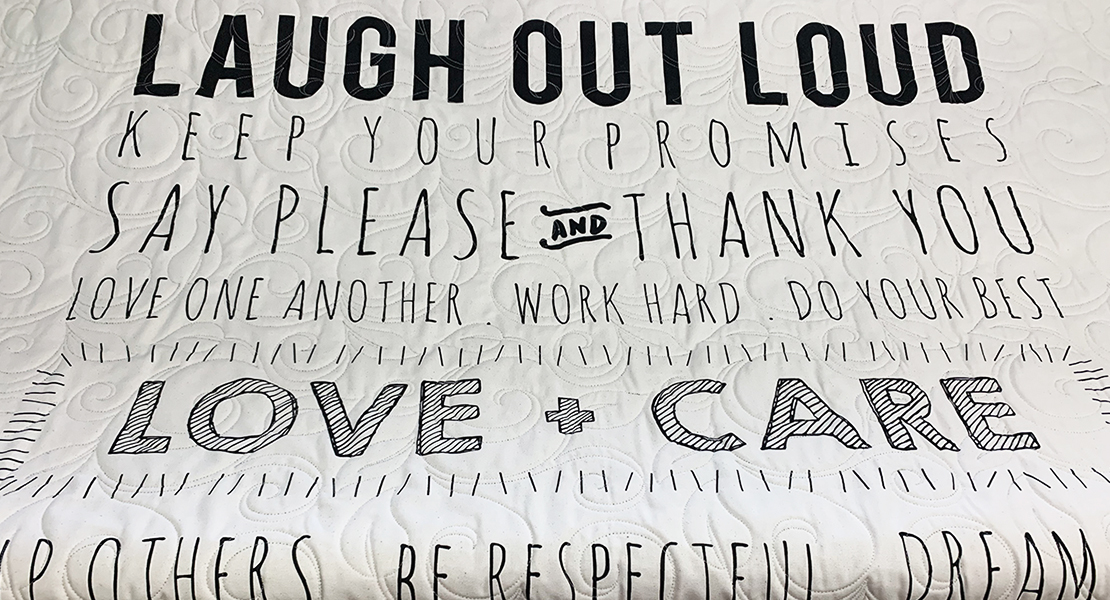 LAUGH OUT LOUD
KEEP YOUR PROMISES
SAY PLEASE AND THANK YOU
LOVE ONE ANOTHER . WORK HARD . DO YOUR BEST
LOVE + CARE
OTHERS BE RESPECTFUL DREAM